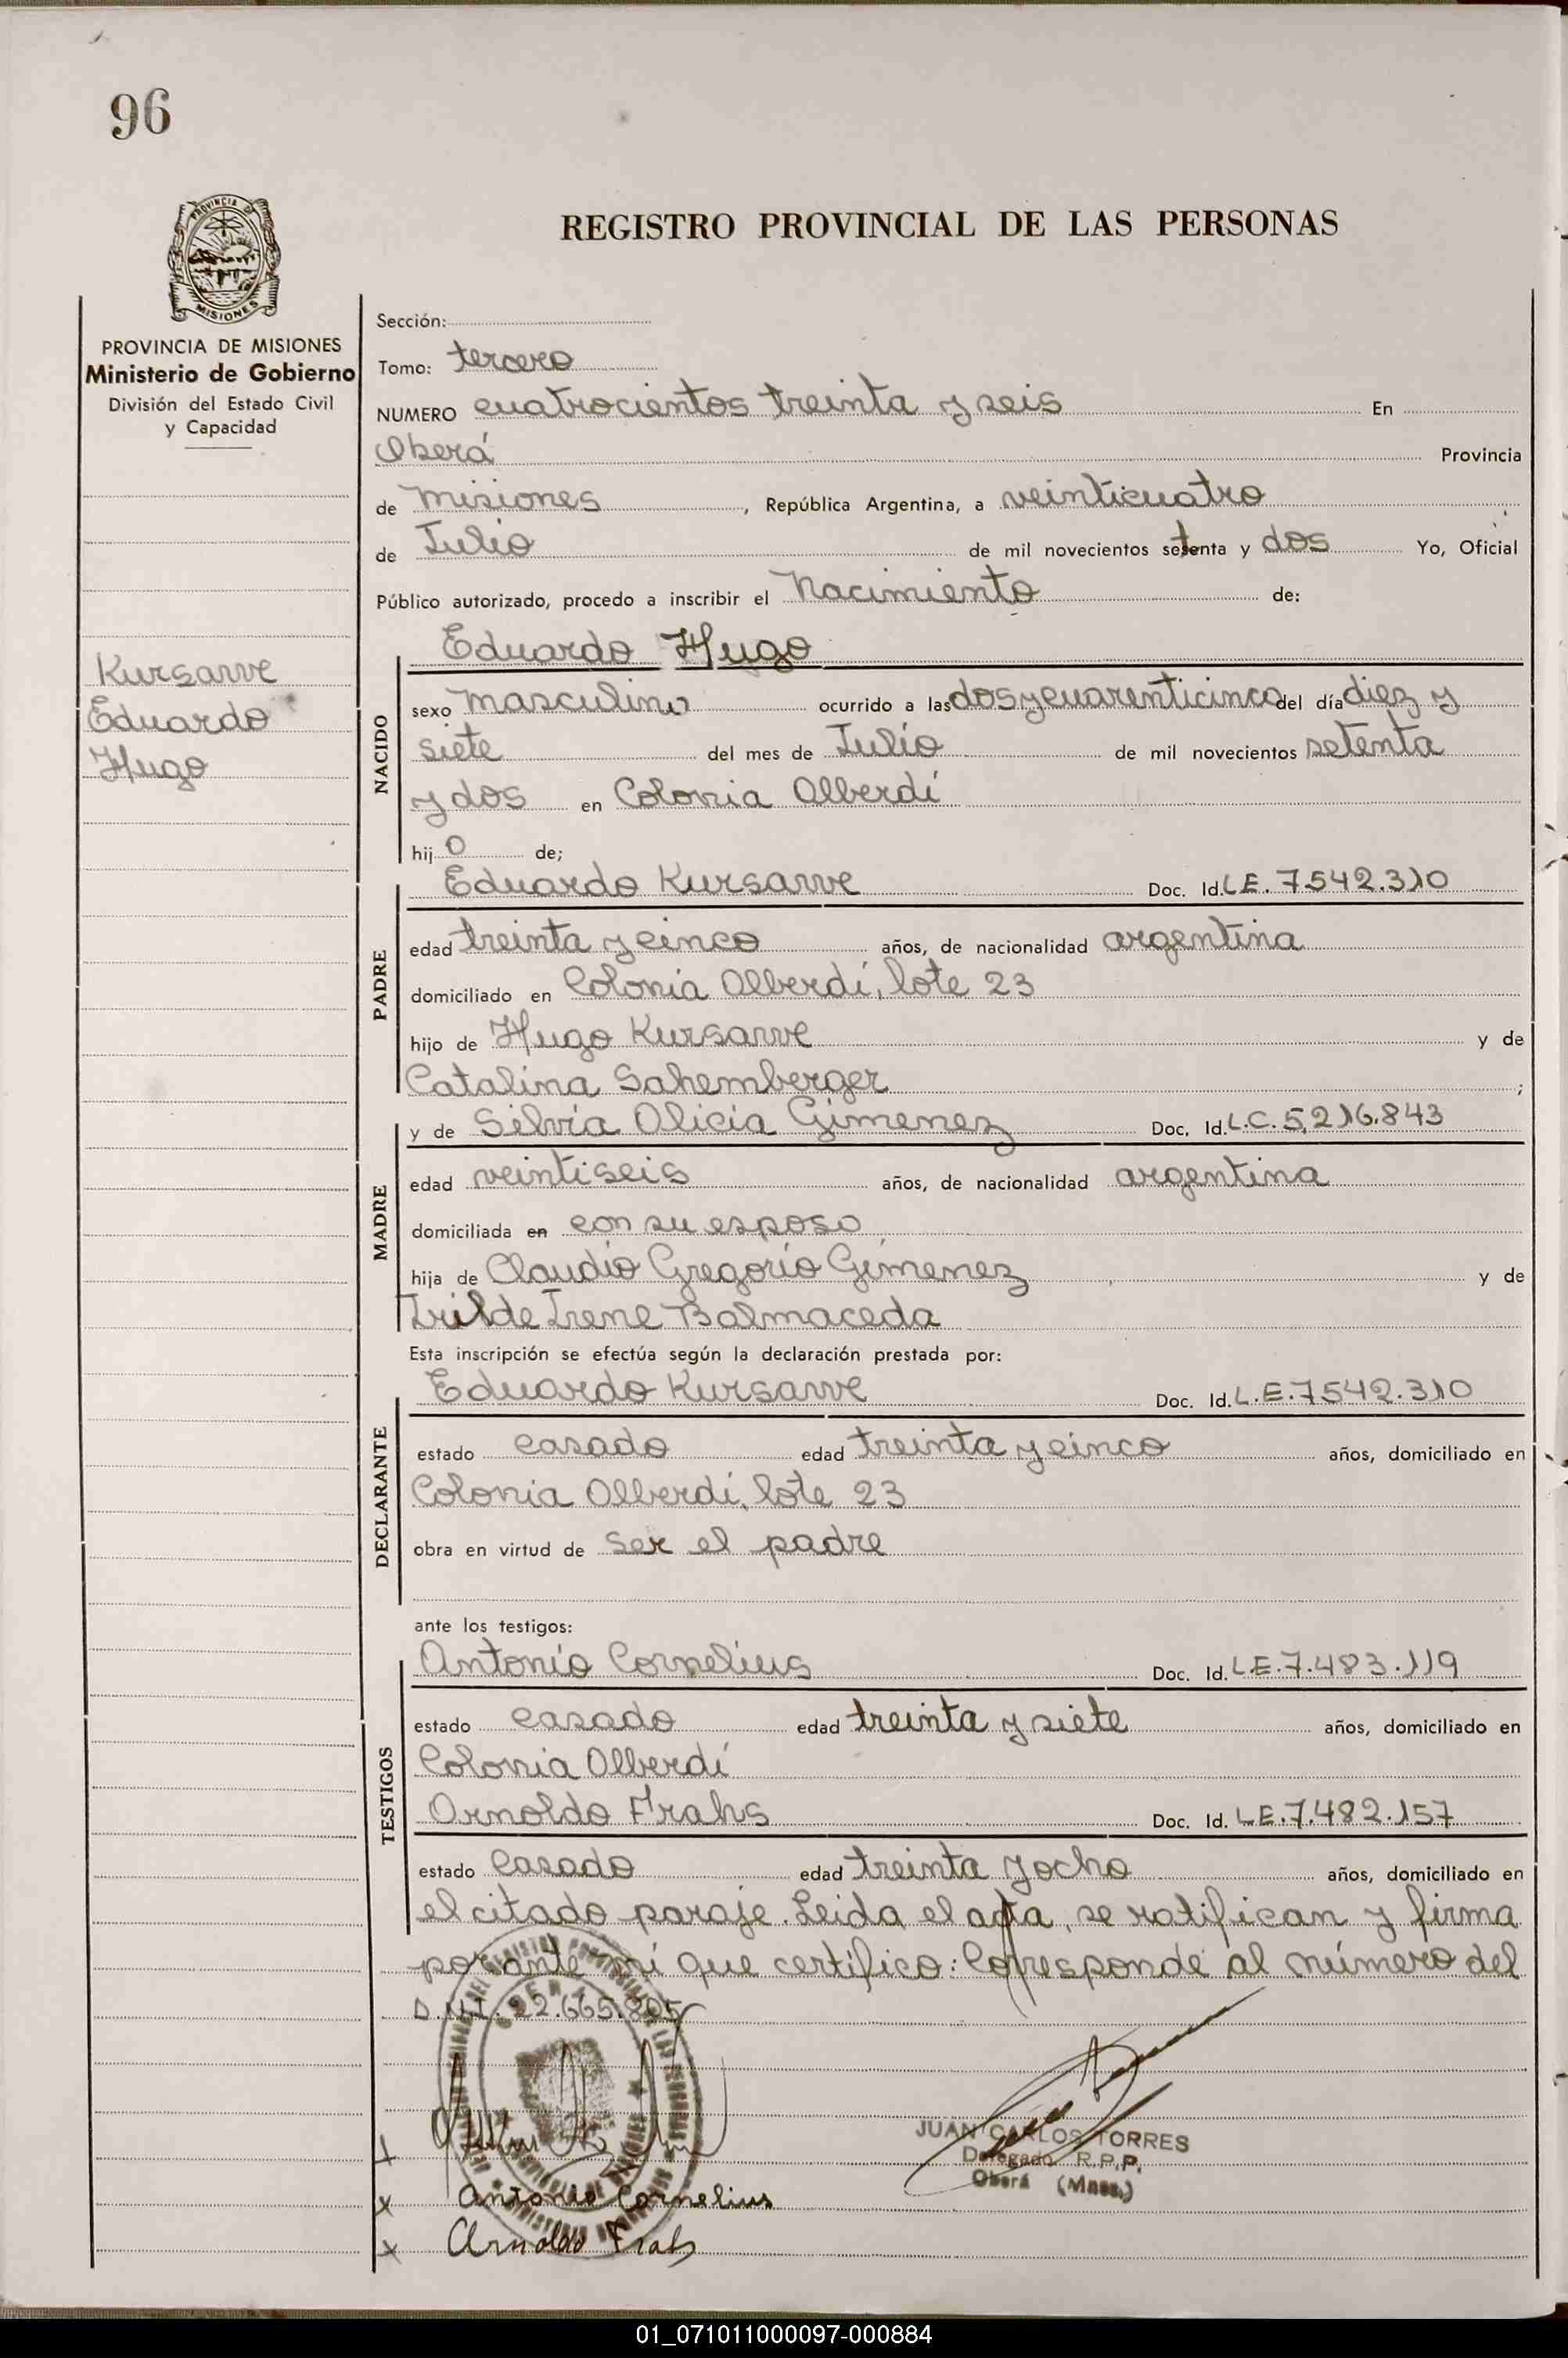 96
PROVINCIA DE
MISIONES
REGISTRO PROVINCIAL DE LAS PERSONAS
PROVINCIA DE MISIONES
Ministerio de Gobierno
División del Estado Civil
y Capacidad
Kursawe
Eduardo
Hugo
Sección:
Tomo: tercero
NUMERO cuatrocientos treinta y seis En
Oberá Provincia
de Misiones, República Argentina, a veinticuatro
de Julio de mil novecientos setenta y dos Yo, Oficial
Público autorizado, procedo a inscribir el Nacimiento de:
NACIDO
Eduardo Hugo
sexo masculino ocurrido a las dos y cuarenticinco del día diez y
siete del mes de Julio de mil novecientos setenta
y dos en Colonia Alberdí
hijo de;
PADRE
Eduardo Kursawe Doc. Id. L.E. 7.542.310
edad treinta y cinco años, de nacionalidad argentina
domiciliado en Colonia Alberdí, lote 23
hijo de Hugo Kursawe y de
Catalina Sahemberger;
MADRE
y de Silvia Alicia Gimenez Doc. Id. L.C. 5,216.843
edad veintiseis años, de nacionalidad argentina
domiciliada en con su esposo
hija de Claudio Gregorio Gimenez y de
Irilde Irene Balmaceda
Esta inscripción se efectúa según la declaración prestada por:
DECLARANTE
Eduardo Kursawe Doc. Id. L.E. 7.542.310
estado casado edad treinta y cinco años, domiciliado en
Colonia Alberdí, lote 23
obra en virtud de ser el padre
ante los testigos:
TESTIGOS
Antonio Cornelius Doc. Id. L.E. 7.483.119
estado casado edad treinta y siete años, domiciliado en
Colonia Alberdí
Arnoldo Frahs Doc. Id. L.E. 7.482.157
estado casado edad treinta y ocho años, domiciliado en
el citado paraje. Leida el acta, se ratifican y firma
por ante mí que certifico: Corresponde al número del
D.N.I. 22.665.805
JUAN CARLOS TORRES
Delegado R.P.P.
Oberá (Mnes.)
x Antonio Cornelius
x Arnoldo Frahs
01_071011000097-000884